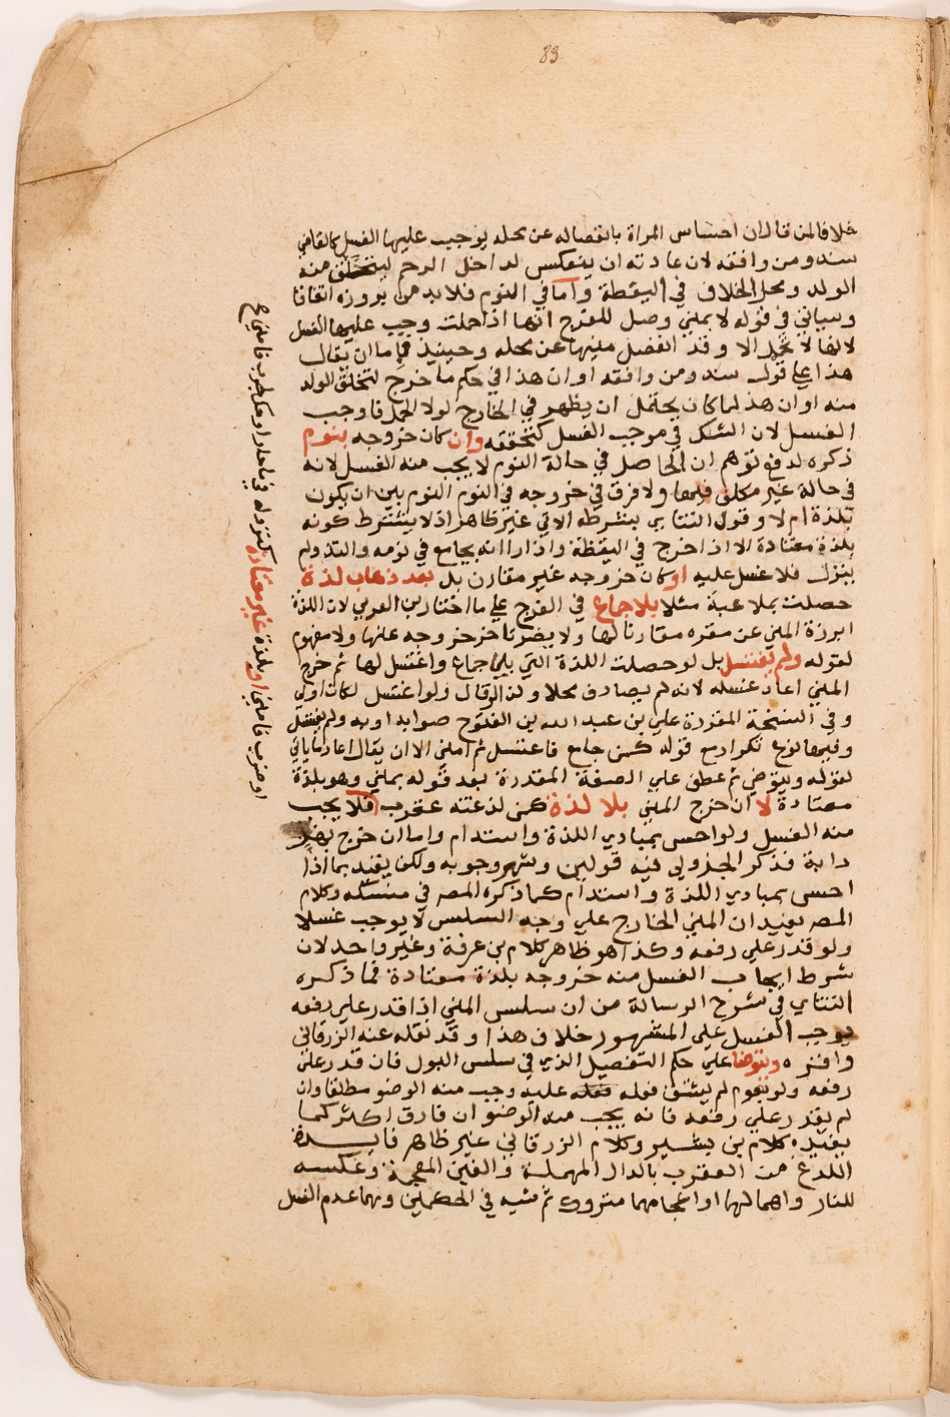 83
خلافا لمن قال ان احساس المراة بانفصاله عن محله يوجب عليها الغسل كالقاضي
سند ومن وافقه لان عادته ان ينعكس لداخل الرحم ليتخلق منه
الولد ومحل الخلاف في اليقظة واما في النوم فلا بد من بروزه اتفاقا
وسياتي في قوله لا بمني وصل للفرج انها اذا حملت وجب عليها الغسل
لانها لا تحمل الا وقد انفصل منيها عن محله وحينيذ فاما ان يقال
هذا علي قول سند ومن وافقه او ان هذا في حكم ما خرج لتخلق الولد
منه او ان هذا لما كان يحتمل ان يظهر في الخارج لولا الحمل فاوجب
الغسل لان الشك في موجب الغسل كتحققه وان كان خروجه بنوم
ذكره لدفع توهم ان الحاصل في حالة النوم لا يجب منه الغسل لانه
في حالة غير مكلف فيها ولا فرق في خروجه في النوم بين ان يكون
بلذة ام لا وقول التتاي بشرطه الاتي غير ظاهر اذ لا يشترط كونه
بلذة معتادة الا اذا خرج في اليقظة واذا راا انه يجامع في نومه والتذ ولم
ينزل فلا غسل عليه او كان خروجه غير مقارن بل بعد ذهاب لذة
حصلت بملاعبة مثلا بلا جماع في الفرج علي ما اختار بن العربي لان اللذة
ابرزة المني عن مقره مقارنا لها ولا يضرنا خروجه عنها ولا مفهوم
لقوله ولم يغتسل بل لو حصلت اللذة التي بلا جماع واغتسل لها ثم خرج
المني اعاد غسله لانه لم يصادف محلا ولذا لو قال ولو اغتسل لكان اولي
وفي النسخة المقروة علي بن عبد الله بن الفتوح صوابه او به ولم يغتسل
وفيها نوع تكرار مع قوله كمن جامع فاغتسل ثم امني الا ان يقال اعاد ما ياتي
لقوله ويتوضي ثم عطف علي الصفة المقدرة بعد قوله بمني وهو بلذة
معتادة لا ان خرج المني بلا لذة كمن لدغته عقرب فلا يجب
منه الغسل ولو احس بمبادي اللذة واستدام واما ان خرج بهز
دابة فذكر الجزولي فيه قولين وشهر وجوبه ولكن يقيد بما اذا
احس بمبادي اللذة واستدام كما ذكره المصر في منسكه وكلام
المصر يفيد ان المني الخارج علي وجه السلس لا يوجب غسلا
ولو قدر علي رفعه وكذا هو ظاهر كلام بن عرفة وغير واحد لان
شرط ايجاب الغسل منه خروجه بلذة معتادة فما ذكره
التتاي في شرح الرسالة من ان سلس المني اذا قدر علي رفعه
يوجب الغسل علي المشهور خلاف هذا وقد نقله عنه الزرقاني
واقره ويتوضا علي حكم التفصيل الذي في سلس البول فان قدر علي
رفعه ولو بصوم لم يشق فعله عليه وجب منه الوضو مطلقا وان
لم يقدر علي رفعه فانه يجب منه الوضو ان فارق اكثر كما
يفيده كلام بن بشير وكلام الزرقاني غير ظاهر فايدة
اللدغ من العقرب بالدال المهملة والغين المعجمة وعكسه
للنار واهمالهما او اعجامهما متروك ثم مشيه في الحكمين وهما عدم الغسل
كنزوله في ما حار او حك لجرب فامني
او ضرب فامني او بلذة غير معتادة